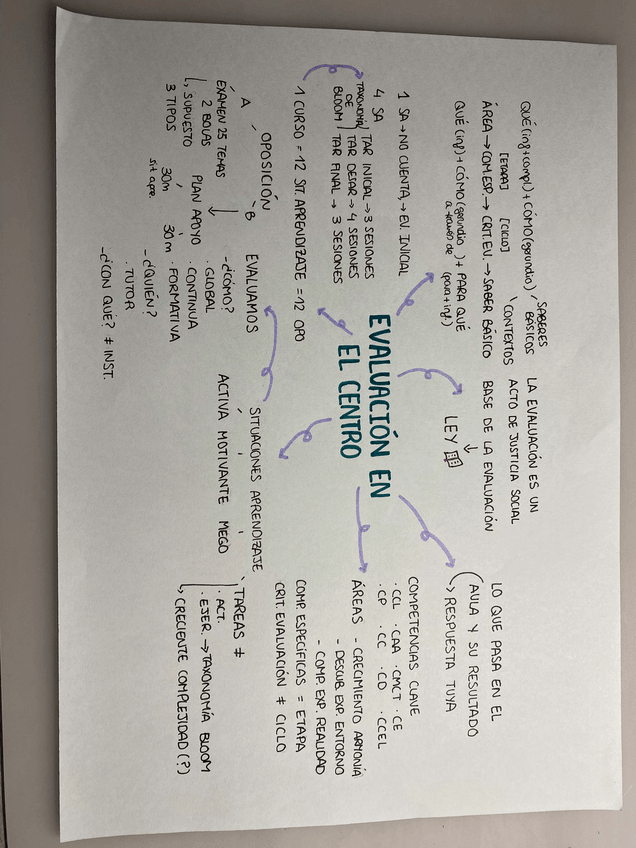 QUÉ (inf + compl) + CÓMO (gerundio)
SABERES
BÁSICOS
CONTEXTOS
[ETAPA] [CICLO]
ÁREA → COM. ESP. → CRIT. EV. → SABER BÁSICO
QUÉ (inf) + CÓMO (gerundio) + PARA QUÉ
a través de (para + inf.)
LA EVALUACIÓN ES UN
ACTO DE JUSTICIA SOCIAL
BASE DE LA EVALUACIÓN
↓
LEY
LO QUE PASA EN EL
AULA Y SU RESULTADO
↳ RESPUESTA TUYA
1 SA → NO CUENTA → EV. INICIAL
4 SA
TAXONOMÍA
DE
BLOOM
TAR INICIAL → 3 SESIONES
TAR DESAR → 4 SESIONES
TAR FINAL → 3 SESIONES
1 CURSO = 12 SIT. APRENDIZAJE = 12 OPO
EVALUACIÓN EN
EL CENTRO
COMPETENCIAS CLAVE
· CCL · CAA · CMCT · CE
· CP · CC · CD · CCEL
ÁREAS - CRECIMIENTO ARMONÍA
- DESCUB. EXP. ENTORNO
- COMP. EXP. REALIDAD
COMP. ESPECÍFICAS = ETAPA
CRIT. EVALUACIÓN ≠ CICLO
OPOSICIÓN
A
B
EXÁMEN 25 TEMAS
2 BOLAS
↳ SUPUESTO
3 TIPOS
PLAN APOYO
30m 30m
sit apre.
EVALUAMOS
- ¿CÓMO?
· GLOBAL
· CONTINUA
· FORMATIVA
- ¿QUIÉN?
· TUTOR
- ¿CON QUÉ? ≠ INST.
SITUACIONES APRENDIZAJE
ACTIVA MOTIVANTE MEGO
TAREAS ≠
· ACT.
· EJER. → TAXONOMÍA BLOOM
↳ CRECIENTE COMPLEJIDAD (?)